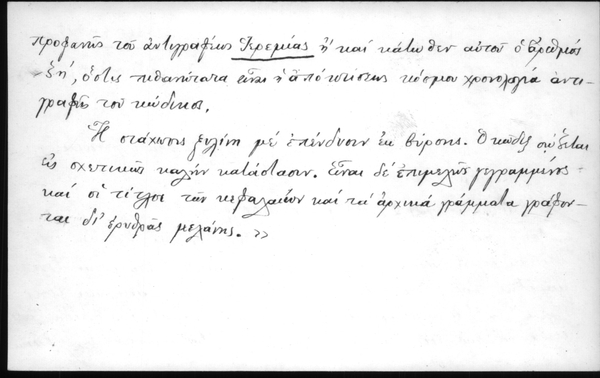 προφανῶς τοῦ ἀντιγραφέως Ἱερεμίας ἤ καί κάτωθεν αὐτοῦ ὁ ἀριθμός
‚ξη', ὅστις πιθανώτατα εἶναι ἡ ἀπό κτίσεως κόσμου χρονολογία ἀντι-
γραφῆς τοῦ κώδικος.
Ἡ στάχωσις ξυλίνη μέ ἐπένδυσιν ἐκ βύρσης. Ὁ κῶδιξ σῴζεται
εἰς σχετικῶς καλήν κατάστασιν. Εἶναι δέ ἐπιμελῶς γεγραμμένος
καί οἱ τίτλοι τῶν κεφαλαίων καί τά ἀρχικά γράμματα γράφον-
ται δι' ἐρυθρᾶς μελάνης. »